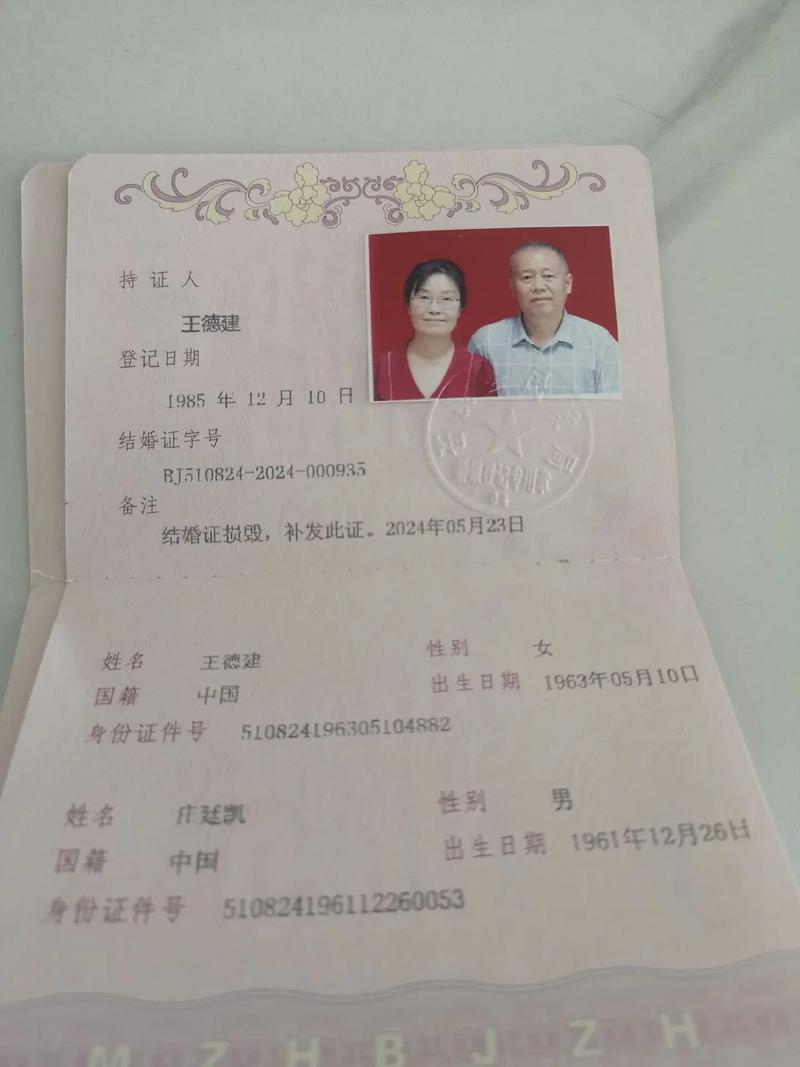 持证人
王德建
登记日期
1985 年 12 月 10 日
结婚证字号
BJ510824-2024-000935
备注
结婚证损毁，补发此证。2024年05月23日
姓名 王德建 性别 女
国籍 中国 出生日期 1963年05月10日
身份证件号 510824196305104882
姓名 庄廷凯 性别 男
国籍 中国 出生日期 1961年12月26日
身份证件号 510824196112260053
M Z H B J Z H